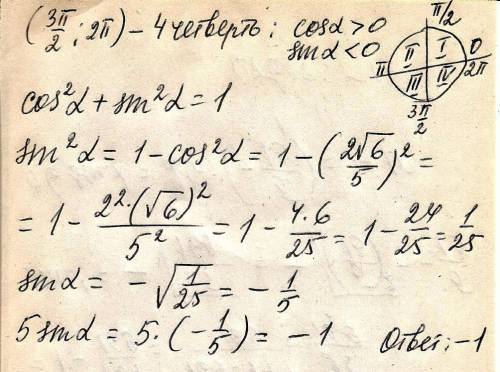 (3π/2; 2π) – 4 четверть: cosα>0
sinα<0
π/2
II I 0
π 2π
III IV
3π/2
cos²α + sin²α = 1
sin²α = 1 – cos²α = 1 – (2√6/5)² =
= 1 – 2²·(√6)²/5² = 1 – 4·6/25 = 1 – 24/25 = 1/25
sinα = –√(1/25) = – 1/5
5sinα = 5·(–1/5) = –1 Ответ: –1